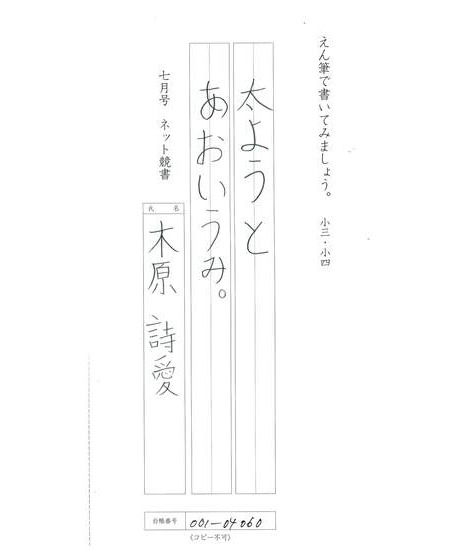 えん筆で書いてみましょう。 小三・小四
太ようと
あおいうみ。
七月号 ネット競書
氏名
木原 詩愛
台帳番号 001-04060
(コピー不可)